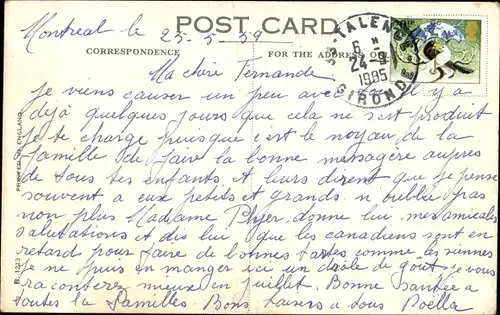 Montreal le 25-5-59
POST CARD
CORRESPONDENCE
FOR THE ADDRESS ONLY
33-TALENCE
6 H
24-9
1985
GIRONDE
PRINTED IN ENGLAND
B. 1213
Ma chère Fernande
Je viens causer un peu avec il y a
déjà quelques jours que cela ne s'est produit
Je te charge puisque c'est le noyau de la
famille de faire la bonne messagère auprès
de tous tes enfants et leurs dirent que je pense
souvent a eux petits et grands n oublie pas
non plus Madame donne lui mes amicales
salutations et dis lui que les canadiens sont en
retard pour faire de bonnes tartes comme les siennes
je ne puis en manger ici un drôle de goût, je vous
raconterez mieux en juillet. Bonne Santée a
toutes la familles. Bons baisers a tous Noëlla